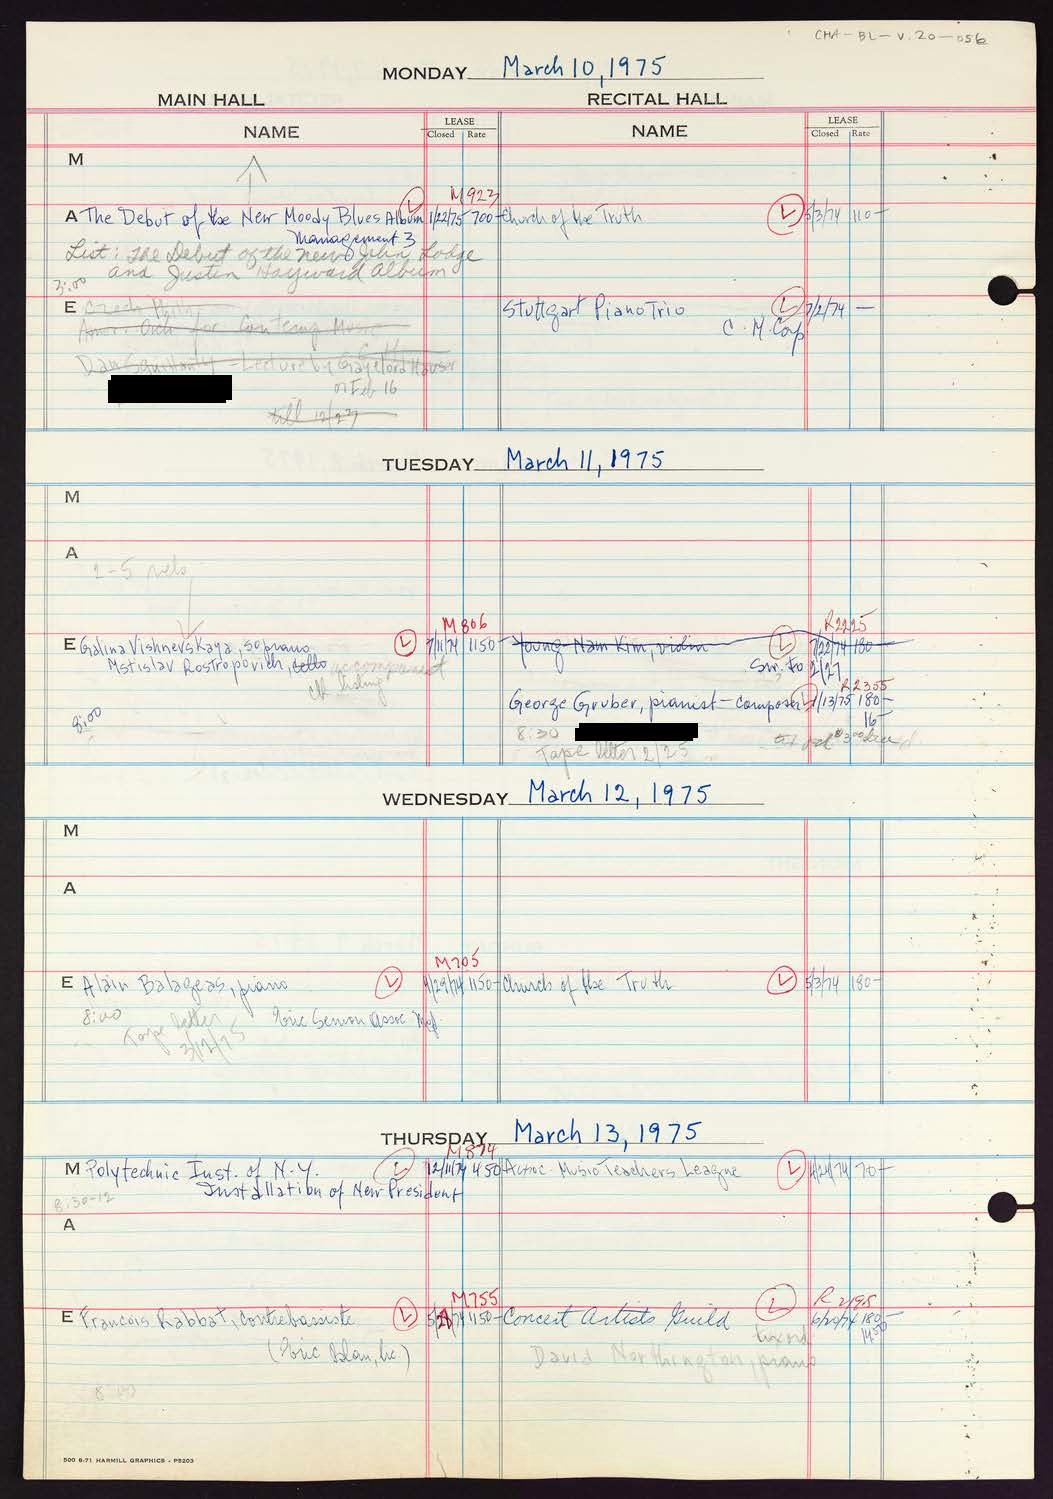 CHA-BL-V.20-056
MONDAY March 10, 1975
MAIN HALL RECITAL HALL
NAME LEASE Closed Rate NAME LEASE Closed Rate
M
M923
A The Debut of the New Moody Blues Album L 1/22/75 700- Church of the Truth L 5/3/74 110-
Management 3
List: The Debut of the new John Lodge
and Justin Hayward Album
3:00
E Czech Phil Stuttgart Piano Trio L 7/2/74 —
Amer. Orch for Contemp Music C. M. Corp
Lecture by Gayelord Hauser
on Feb 16
till 12/27
TUESDAY March 11, 1975
M
A
2-5
M806 R2225
E Galina Vishnevskaya, soprano L 7/11/74 1150- Young Nam Kim, violin L 7/22/74 180-
Mstislav Rostropovich, cello accompanist Sw. to 2/27
listing
R2355
George Gruber, pianist-composer L 1/13/75 180-
16-
8:00
8:30
Tape letter 2/25
WEDNESDAY March 12, 1975
M
A
M705
E Alain Balageas, piano L 4/29/74 1150- Church of the Truth L 5/3/74 180-
8:00 Eric Semon Assoc
Tape letter
3/12/75
THURSDAY March 13, 1975
M874
M Polytechnic Inst. of N.Y. L 12/11/74 450 Assoc. Music Teachers League L 4/24/74 70-
Installation of New President
8:30-12
A
M755 R 2195
E Francois Rabbat, contrebassiste L 5/ /74 1150- Concert Artists Guild L 6/20/74 180-
David Northington, piano
8:00
500 6-71 HARMILL GRAPHICS - P5203